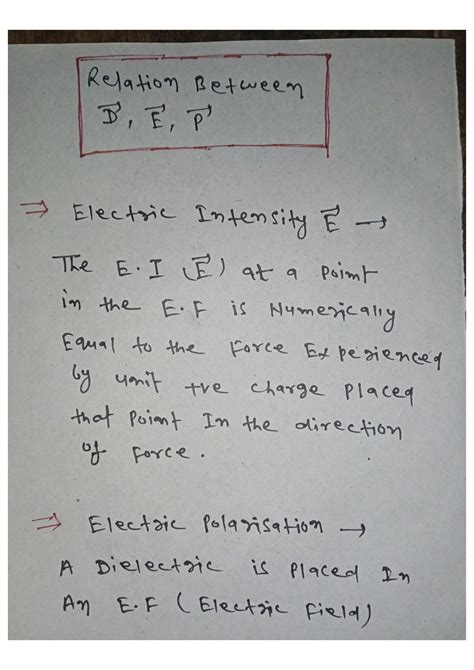 Relation Between
D⃗, E⃗, P⃗
⇒ Electric Intensity E⃗ →
The E.I (E⃗) at a Point
in the E.F is Numerically
Equal to the Force Experienced
by unit +ve charge Placed
that Point In the direction
of Force.
⇒ Electric Polarisation →
A Dielectric is Placed In
An E.F (Electric Field)